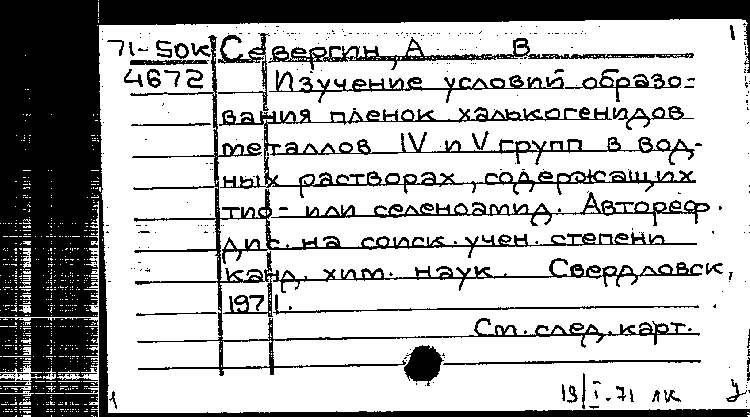 1
71-50к Севергин, А В
4672 Изучение условий образо-
вания пленок халькогенидов
металлов IV и V групп в вод-
ных растворах, содержащих
тио- или селеноамид. Автореф.
дис. на соиск. учен. степени
канд. хим. наук. Свердловск,
1971.
См. след. карт.
19/I-71 лк